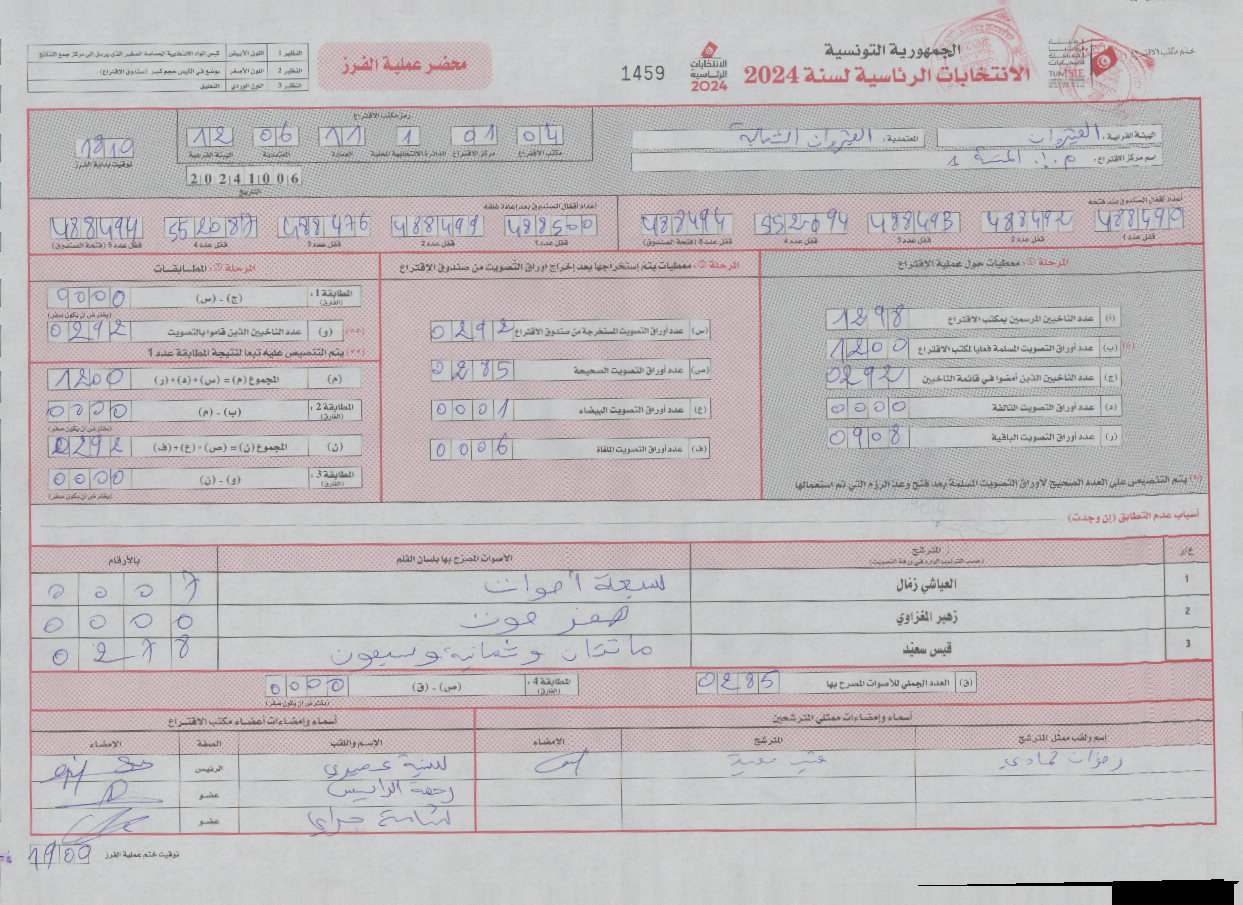 الجمهورية التونسية
الانتخابات الرئاسية لسنة 2024
الانتخابات الرئاسية 2024
1459
محضر عملية الفرز
النظير 1 اللون الأبيض
النظير 2 اللون الأصفر يوضع في الكيس حجم كبير (صندوق الاقتراع)
النظير 3 اللون الوردي التعليق
ختم مكتب الاقتراع
الهيئة الفرعية: القيروان
المعتمدية: القيروان الشمالية
اسم مركز الاقتراع:
رمز مكتب الاقتراع
04 01 1 11 06 12
مكتب الاقتراع مركز الاقتراع الدائرة الانتخابية المحلية العمادة المعتمدية الهيئة الفرعية
توقيت بداية الفرز
20241006
التاريخ
أعداد أقفال الصندوق عند فتحه
قفل عدد 1 قفل عدد 2 قفل عدد 3 قفل عدد 4 قفل عدد 5 (فتحة الصندوق)
أعداد أقفال الصندوق بعد إعادة غلقه
قفل عدد 1 قفل عدد 2 قفل عدد 3 قفل عدد 4 قفل عدد 5 (فتحة الصندوق)
المرحلة ①: معطيات حول عملية الاقتراع
(أ) عدد الناخبين المرسمين بمكتب الاقتراع 1298
(ب) عدد أوراق التصويت المسلمة فعليا لمكتب الاقتراع 1200
(ج) عدد الناخبين الذين أمضوا في قائمة الناخبين 0292
(د) عدد أوراق التصويت التالفة 0000
(ر) عدد أوراق التصويت الباقية 0908
(*) يتم التنصيص على العدد الصحيح لأوراق التصويت المسلمة بعد فتح وعد الرزم التي تم استعمالها
المرحلة ②: معطيات يتم إستخراجها بعد إخراج أوراق التصويت من صندوق الاقتراع
(س) عدد أوراق التصويت المستخرجة من صندوق الاقتراع 0292
(ص) عدد أوراق التصويت الصحيحة 0285
(ع) عدد أوراق التصويت البيضاء 0001
(ف) عدد أوراق التصويت الملغاة 0006
المرحلة ③: المطابقات
المطابقة 1: (الفارق) (ج) - (س)
(يفترض أن يكون صفر)
(**) (و) عدد الناخبين الذين قاموا بالتصويت 0292
(**) يتم التنصيص عليه تبعا لنتيجة المطابقة عدد 1
(م) المجموع (م) = (س) + (د) + (ر) 1200
المطابقة 2: (الفارق) (ب) - (م) 0000
(يفترض أن يكون صفر)
(ن) المجموع (ن) = (ص) + (ع) + (ف) 0292
المطابقة 3: (الفارق) (و) - (ن) 0000
(يفترض أن يكون صفر)
أسباب عدم التطابق (إن وجدت)
ع/ر المترشح (حسب الترتيب الوارد في ورقة التصويت) الأصوات المصرح بها بلسان القلم بالأرقام
1 العياشي زمّال سبعة أصوات 0007
2 زهير المغزاوي صفر صوت 0000
3 قيس سعيّد مائتان وثمانية وسبعون 0278
(ق) العدد الجملي للأصوات المصرح بها 0285
المطابقة 4: (الفارق) (ص) - (ق) 0000
(يفترض أن يكون صفر)
أسماء وإمضاءات ممثلي المترشحين
أسماء وإمضاءات أعضاء مكتب الاقتراع
اسم ولقب ممثل المترشح المترشح الامضاء
الإسم واللقب الصفة الإمضاء
الرئيس
عضو
عضو
توقيت ختم عملية الفرز 19 09